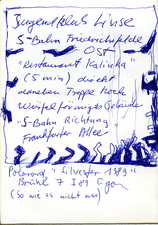 Jugendklub Linse
S-Bahn Friedrichsfelde
Ost
"Restaurant Kalinka"
(5 min) direkt
daneben Treppe hoch
Würfelförmiges Gebäude
"S-Bahn Richtung
Frankfurter Allee
Polaroid "Silvester 1989"
Brühl 7 I 89
(so wie es nicht war)